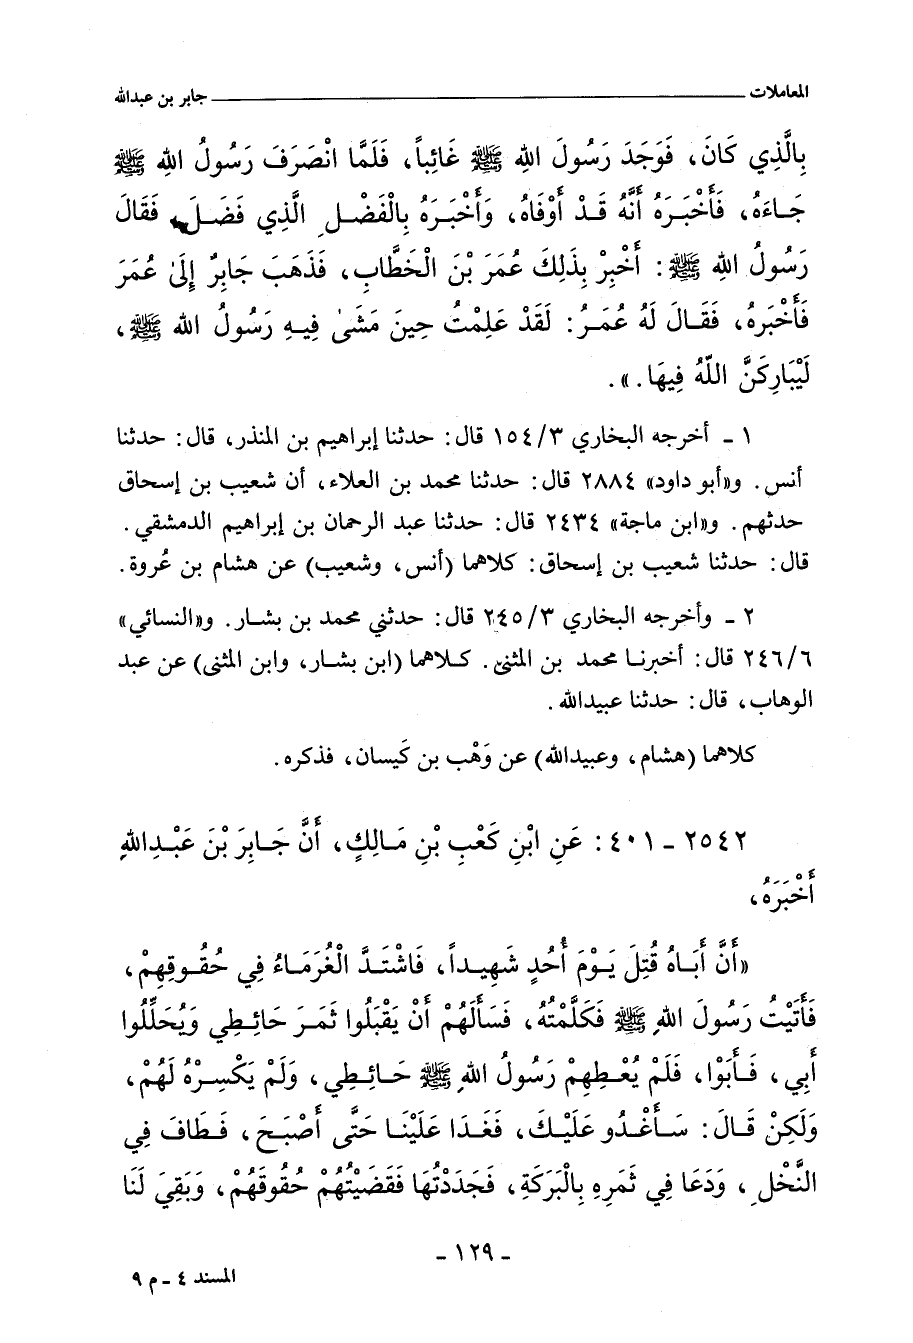 المعاملات جابر بن عبدالله
بِالَّذِي كَانَ، فَوَجَدَ رَسُولَ اللهِ ﷺ غَائِباً، فَلَمَّا انْصَرَفَ رَسُولُ اللهِ ﷺ
جَاءَهُ، فَأَخْبَرَهُ أَنَّهُ قَدْ أَوْفَاهُ، وَأَخْبَرَهُ بِالْفَضْلِ الَّذِي فَضَلَ، فَقَالَ
رَسُولُ اللهِ ﷺ: أَخْبِرْ بِذَلِكَ عُمَرَ بْنَ الْخَطَّابِ، فَذَهَبَ جَابِرٌ إِلَىٰ عُمَرَ
فَأَخْبَرهُ، فَقَالَ لَهُ عُمَرُ: لَقَدْ عَلِمْتُ حِينَ مَشَىٰ فِيهِ رَسُولُ الله ﷺ،
لَيُبَارِكَنَّ اللّهُ فِيهَا.».
١ - أخرجه البخاري ١٥٤/٣ قال: حدثنا إبراهيم بن المنذر، قال: حدثنا
أنس. و«أبو داود» ٢٨٨٤ قال: حدثنا محمد بن العلاء، أن شعيب بن إسحاق
حدثهم. و«ابن ماجة» ٢٤٣٤ قال: حدثنا عبد الرحمان بن إبراهيم الدمشقي.
قال: حدثنا شعيب بن إسحاق: كلاهما (أنس، وشعيب) عن هشام بن عُروة.
٢ - وأخرجه البخاري ٢٤٥/٣ قال: حدثني محمد بن بشار. و«النسائي»
٢٤٦/٦ قال: أخبرنا محمد بن المثنى. كلاهما (ابن بشار، وابن المثنى) عن عبد
الوهاب، قال: حدثنا عبيدالله.
كلاهما (هشام، وعبيدالله) عن وَهْب بن كَيسان، فذكره.
٢٥٤٢ - ٤٠١: عَنِ ابْنِ كَعْبِ بْنِ مَالِكٍ، أَنَّ جَابِرَ بْنَ عَبْدِاللهِ
أَخْبَرَهُ،
«أَنَّ أَبَاهُ قُتِلَ يَوْمَ أُحُدٍ شَهِيداً، فَاشْتَدَّ الْغُرَمَاءُ فِي حُقُوقِهِمْ،
فَأَتَيْتُ رَسُولَ اللهِ ﷺ فَكَلَّمْتُهُ، فَسَأَلَهُمْ أَنْ يَقْبَلُوا ثَمَرَ حَائِطِي وَيُحَلِّلُوا
أَبِي، فَأَبَوْا، فَلَمْ يُعْطِهِمْ رَسُولُ اللهِ ﷺ حَائِطِي، وَلَمْ يَكْسِرْهُ لَهُمْ،
وَلَكِنْ قَالَ: سَأَغْدُو عَلَيْكَ، فَغَدَا عَلَيْنَا حَتَّى أَصْبَحَ، فَطَافَ فِي
النَّخْلِ، وَدَعَا فِي ثَمَرِهِ بِالْبَرَكَةِ، فَجَدَدْتُهَا فَقَضَيْتُهُمْ حُقُوقَهُمْ، وَبَقِيَ لَنَا
- ١٢٩ -
المسند ٤ - م ٩